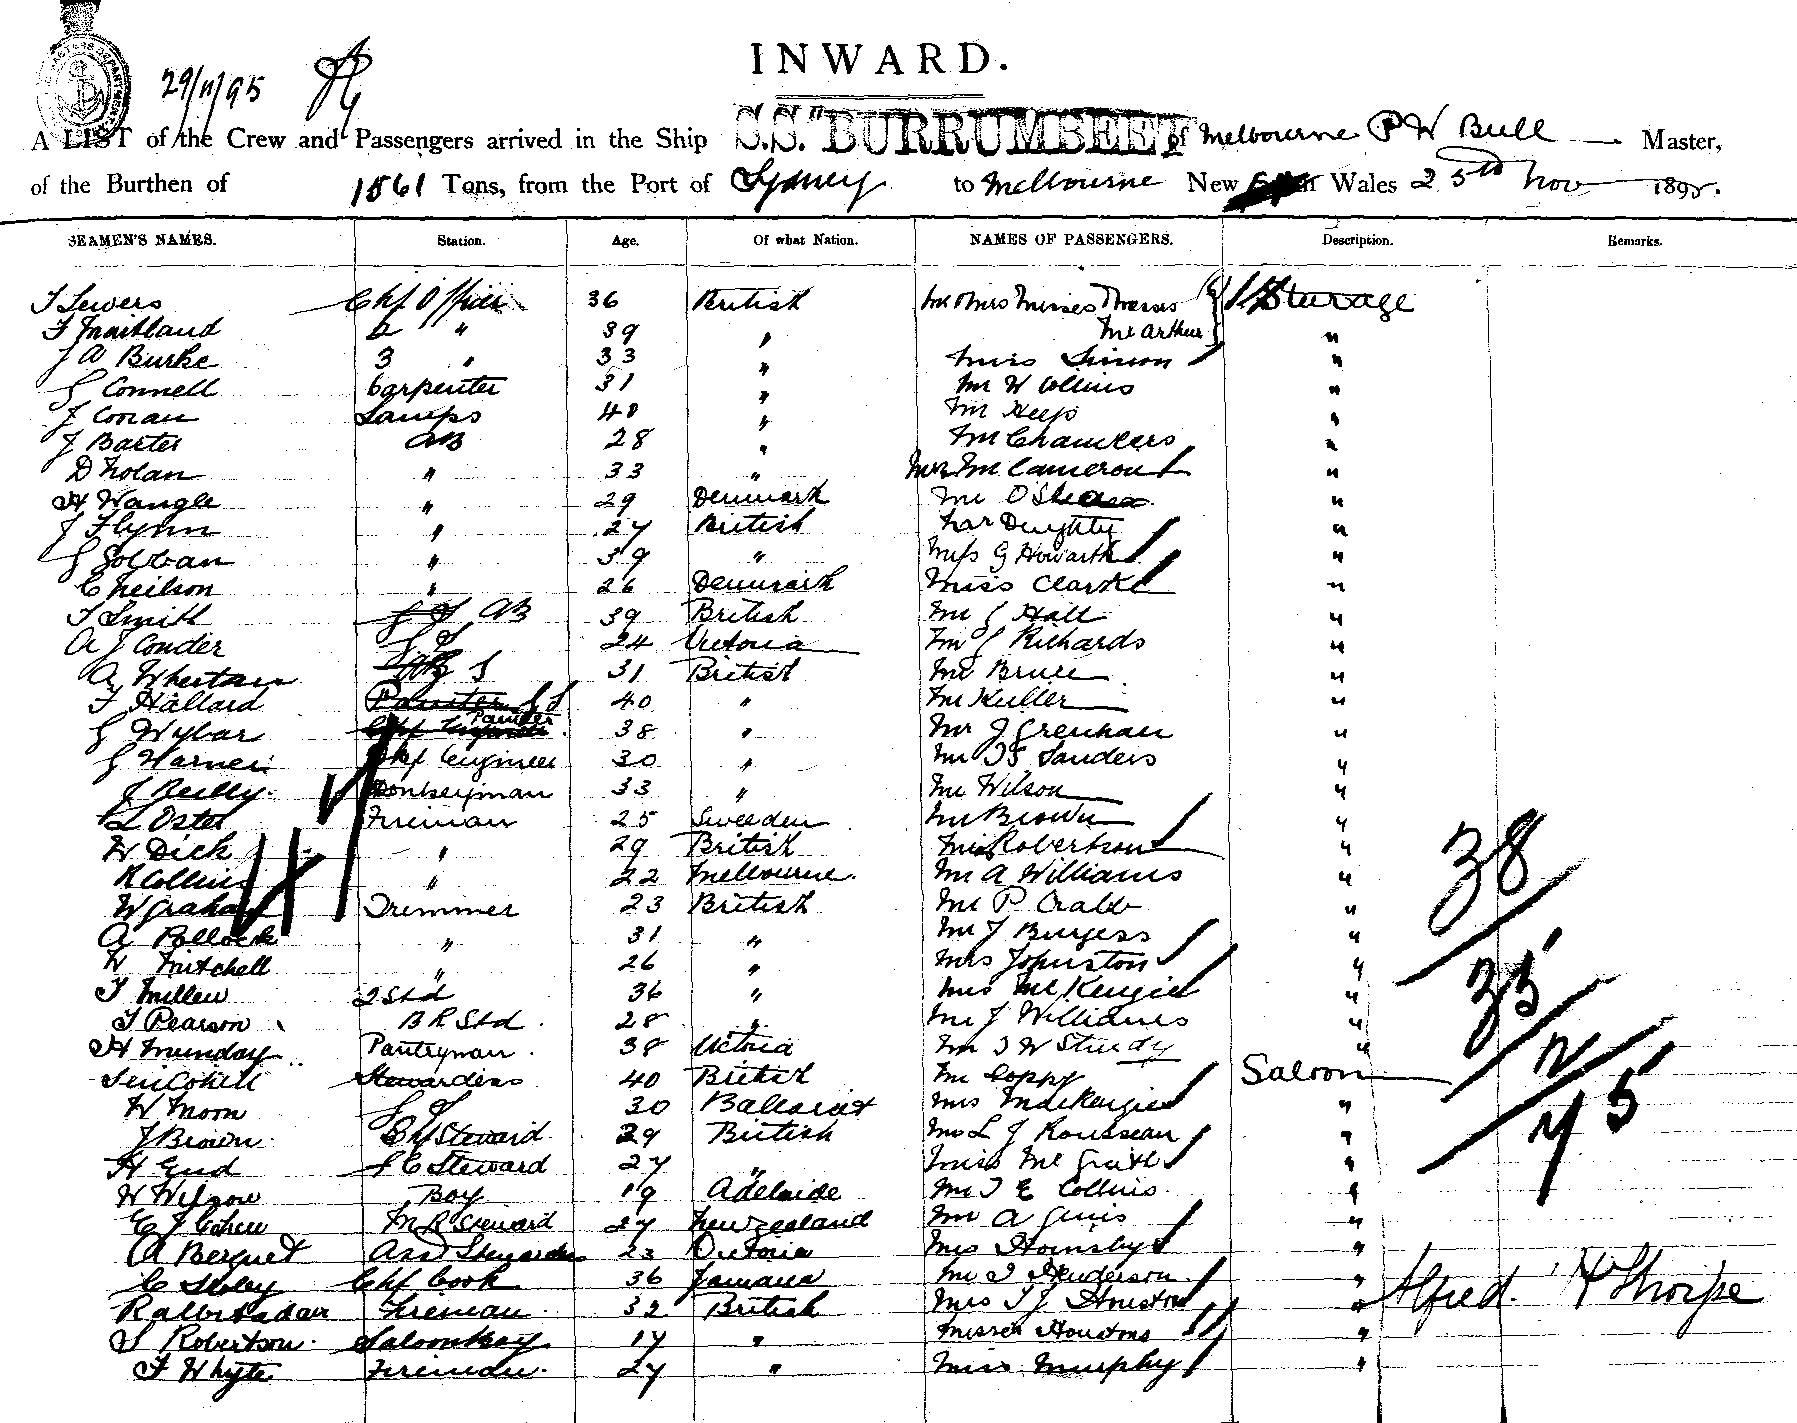 29/11/95
INWARD.
A LIST of the Crew and Passengers arrived in the Ship S.S. "BURRUMBEET of Melbourne P W Bull Master,
of the Burthen of 1561 Tons, from the Port of Sydney to Melbourne New Wales 25th Nov 1895.
SEAMEN'S NAMES. Station. Age. Of what Nation. NAMES OF PASSENGERS. Description. Remarks.
T Sewers Chf Officer 36 British Mr & Mrs Misses Steerage
F Maitland 2 " 39 " McArthur "
J A Burke 3 " 33 " Miss Simon "
G Connell Carpenter 31 " Mr W Collins "
J Conan Lamps 40 " Mr Heep "
J Barter AB 28 " Mr Chambers "
D Nolan " 33 " Mr Cameron "
H Wangle " 29 Denmark Mr O "
J Flynn " 27 British "
G " 39 " Miss G Howarth "
C Neilson " 26 Denmark Miss Clarke "
T Smith AB 39 British Mr J Hall "
A J Conder 24 Victoria Mr J Richards "
A 31 British Mr Bruce "
F Hallard 40 " Mr "
G Wybar Painter 38 " Mr J Grenhan "
G Chf Engineer 30 " Mr Sanders "
J Reilly Donkeyman 33 " Mr Wilson "
L Oster Fireman 25 Sweeden Mr Brown "
W Dick " 29 British Robertson "
R Collins " 22 Melbourne Mr A Williams "
W Graham Trimmer 23 British Mr P Crabb "
A Pollock " 31 " Mr J Burgess "
W Mitchell " 26 " Mrs Johnston "
T Millew 2 Std 36 " Mrs McKenzie "
T Pearson B R Std 28 " Mr J Williams "
H Munday Pantryman 38 Victoria Mr T W Sturdy "
Stewardess 40 British Mr Coppy Saloon
W Moon 30 Ballarat Mrs MacKenzie "
J Brown Chf Steward 29 British Mr L J Rousseau "
H Steward 27 " Miss "
W Boy 19 Adelaide Mr T E Collins "
E J Cohen Steward 27 New Zealand Mr A "
A Berquet 23 Victoria Mrs Hornsby "
C Chf Cook 36 Jamaica Mr T Henderson "
Fireman 32 British Mrs T J Houston " Alfred H Thorpe
S Robertson 17 " Misses Houstons "
F Whyte Fireman 27 " Miss Murphy "
38
35
2
75